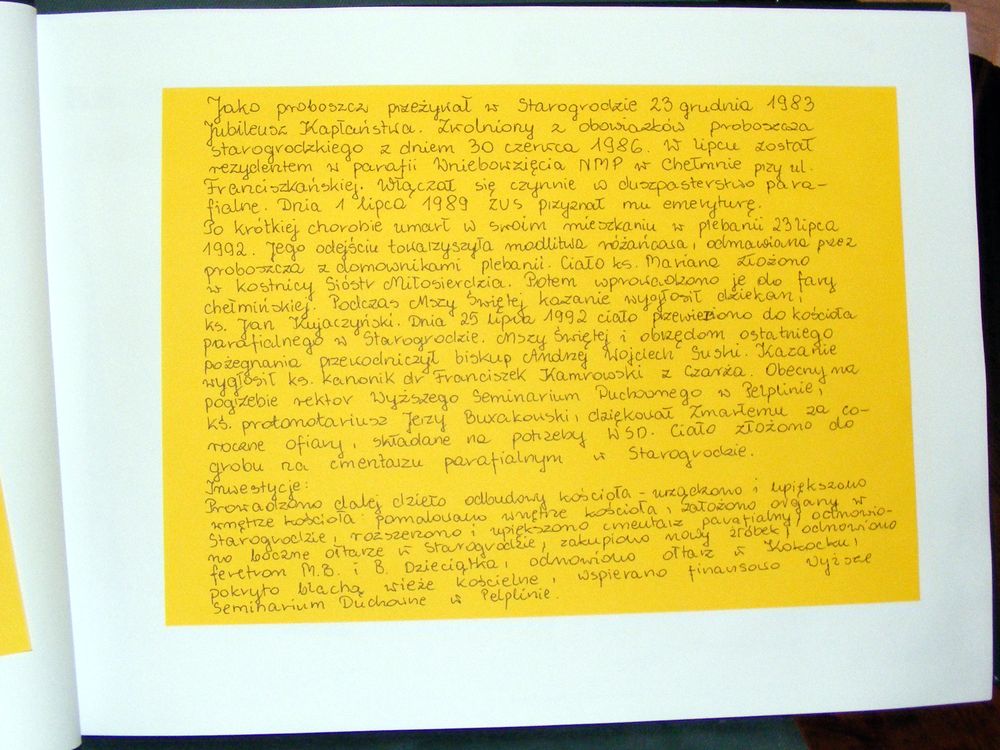 Jako proboszcz przeżywał w Starogrodzie 23 grudnia 1983
Jubileusz Kapłaństwa. Zwolniony z obowiązków proboszcza
starogrodzkiego z dniem 30 czerwca 1986. W lipcu został
rezydentem w parafii Wniebowzięcia NMP w Chełmnie przy ul.
Franciszkańskiej. Włączał się czynnie w duszpasterstwo para-
fialne. Dnia 1 lipca 1989 ZUS przyznał mu emeryturę.
Po krótkiej chorobie umarł w swoim mieszkaniu w plebanii 23 lipca
1992. Jego odejściu towarzyszyła modlitwa różańcowa, odmawiana przez
proboszcza z domownikami plebanii. Ciało ks. Mariana złożono
w kostnicy Sióstr Miłosierdzia. Potem wprowadzono je do fary
chełmińskiej. Podczas Mszy Świętej kazanie wygłosił dziekan,
ks. Jan Kujaczyński. Dnia 25 lipca 1992 ciało przewieziono do kościoła
parafialnego w Starogrodzie. Mszy Świętej i obrzędom ostatniego
pożegnania przewodniczył biskup Andrzej Wojciech Suski. Kazanie
wygłosił ks. kanonik dr Franciszek Kamrowski z Czarża. Obecny na
pogrzebie rektor Wyższego Seminarium Duchownego w Pelplinie,
ks. protonotariusz Jerzy Buxakowski, dziękował Zmarłemu za co-
roczne ofiary, składane na potrzeby WSD. Ciało złożono do
grobu na cmentarzu parafialnym w Starogrodzie.
Inwestycje:
Prowadzono dalej dzieło odbudowy kościoła - urządzono i upiększono
wnętrze kościoła: pomalowano wnętrze kościoła, założono organy w
Starogrodzie, rozszerzono i upiększono cmentarz parafialny, odnowio-
no boczne ołtarze w Starogrodzie, zakupiono nowy żłóbek, odnowiono
feretron M.B. i B. Dzieciątka, odnowiono ołtarz w Kokocku,
pokryto blachą wieże kościelne, wspierano finansowo Wyższe
Seminarium Duchowne w Pelplinie.